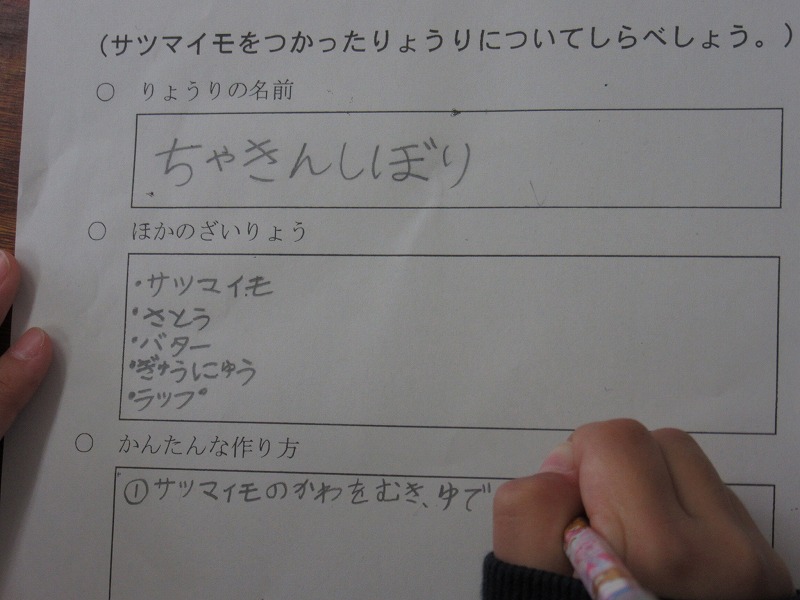 （サツマイモをつかったりょうりについてしらべしょう。）
○ りょうりの名前
ちゃきんしぼり
○ ほかのざいりょう
・サツマイモ
・さとう
・バター
・ぎゅうにゅう
・ラップ
○ かんたんな作り方
①サツマイモのかわをむき、ゆで